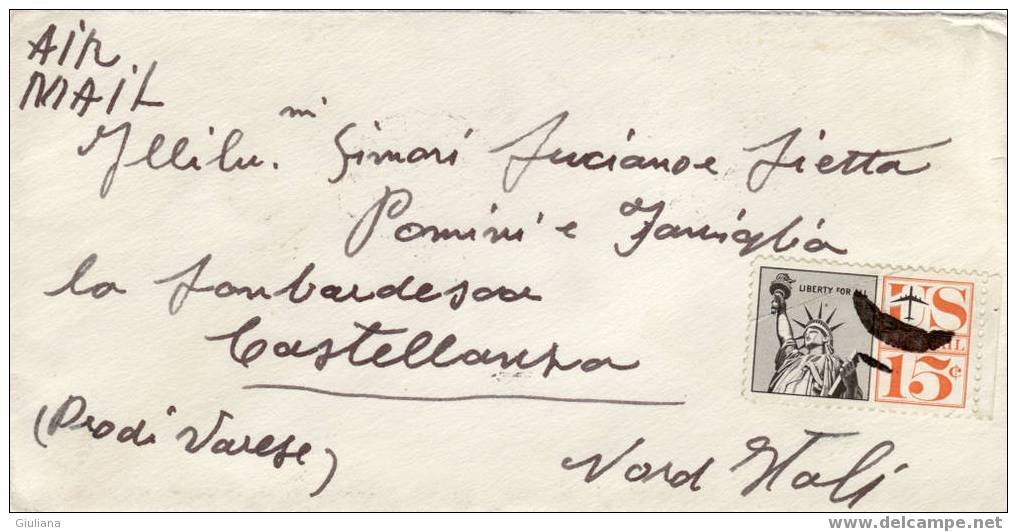 AIR
MAIL
Illi mi. Simari Lucianoe Lietta
Pomini e Famiglia
la Lombardesa
Castellanza
(Pro di Varese)
Nord Italj
LIBERTY FOR ALL
US
15¢
Giuliana
www.delcampe.net